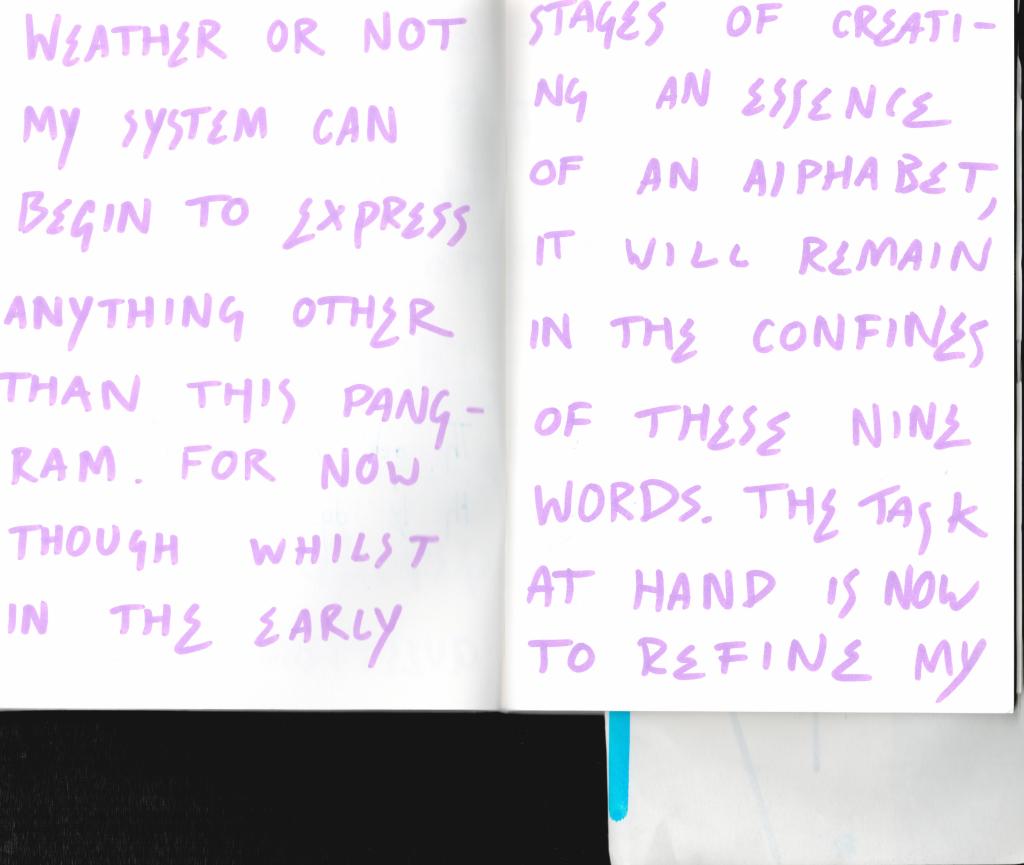 WEATHER OR NOT
MY SYSTEM CAN
BEGIN TO EXPRESS
ANYTHING OTHER
THAN THIS PANG-
RAM. FOR NOW
THOUGH WHILST
IN THE EARLY
STAGES OF CREATI-
NG AN ESSENCE
OF AN ALPHABET,
IT WILL REMAIN
IN THE CONFINES
OF THESE NINE
WORDS. THE TASK
AT HAND IS NOW
TO REFINE MY